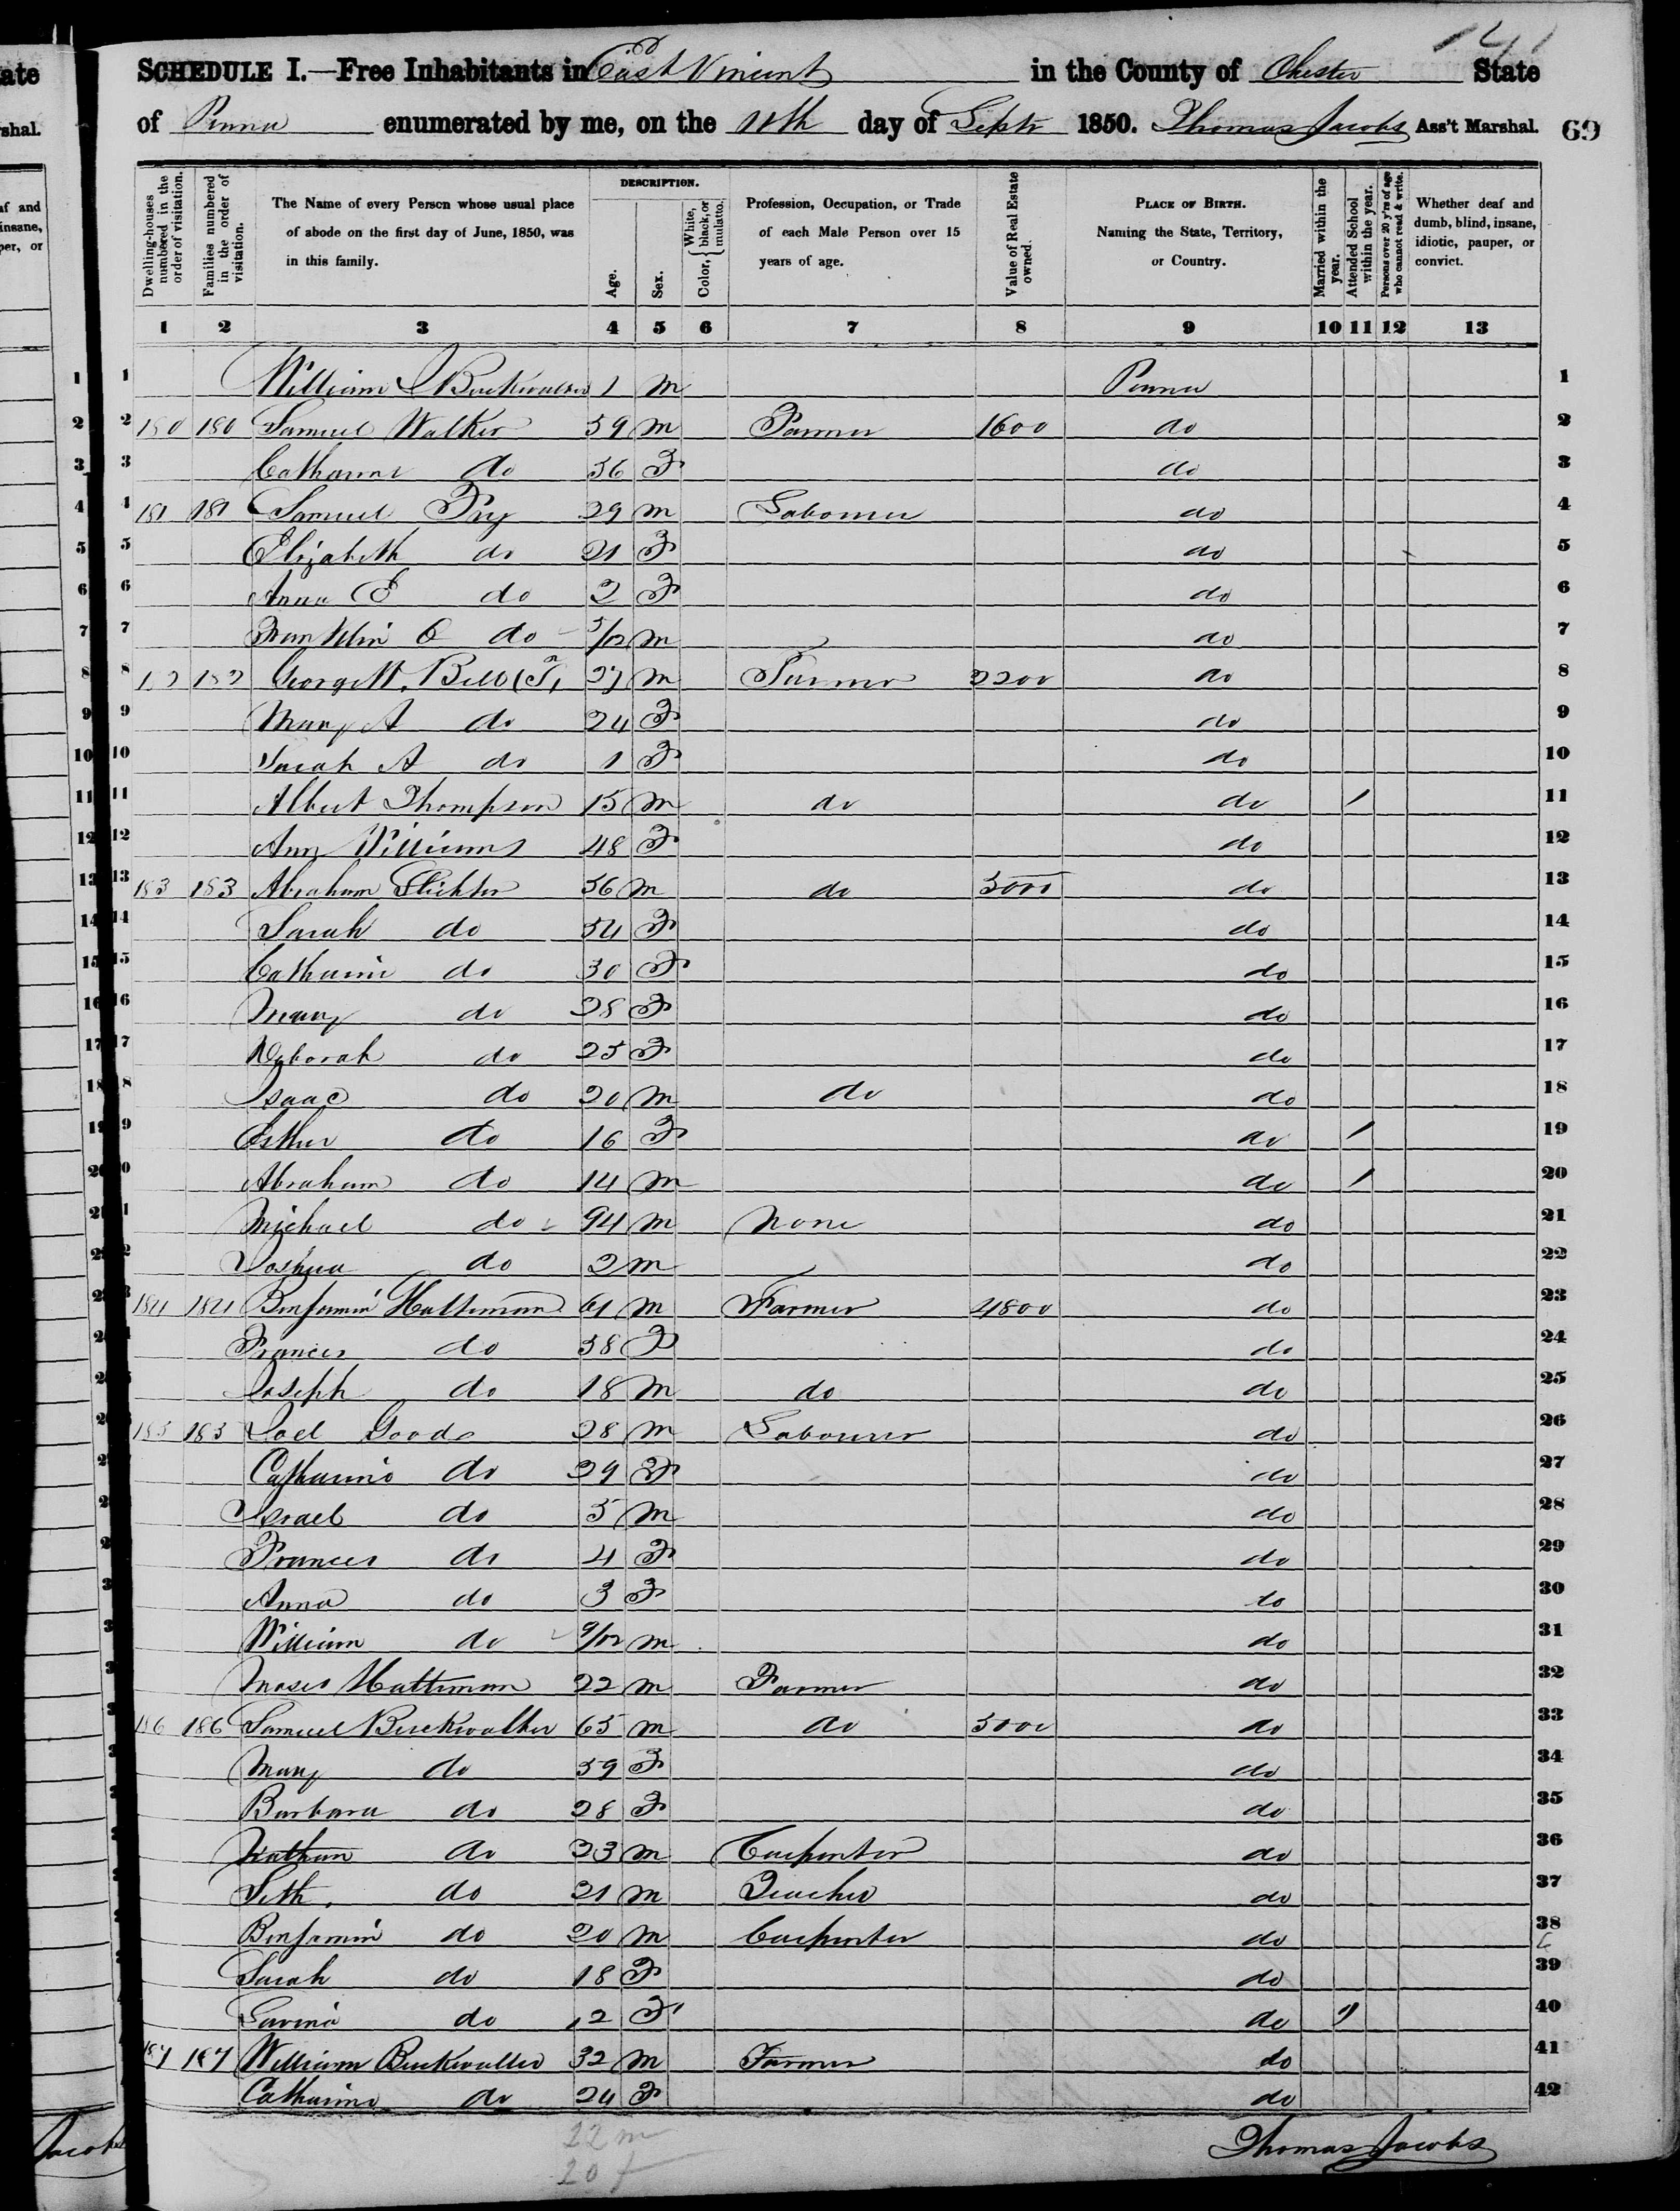 141
SCHEDULE I.—Free Inhabitants in East Vincent in the County of Chester State
of Penna enumerated by me, on the 11th day of Septr 1850. Thomas Jacobs Ass't Marshal. 69
Dwelling-houses numbered in the order of visitation. Families numbered in the order of visitation. The Name of every Person whose usual place of abode on the first day of June, 1850, was in this family. DESCRIPTION. Age. Sex. Color, { White, black, or mulatto. Profession, Occupation, or Trade of each Male Person over 15 years of age. Value of Real Estate owned. PLACE OF BIRTH. Naming the State, Territory, or Country. Married within the year. Attended School within the year. Persons over 20 y'rs of age who cannot read & write. Whether deaf and dumb, blind, insane, idiotic, pauper, or convict.
1 2 3 4 5 6 7 8 9 10 11 12 13
1 William Buckwalter 1 m Penna 1
2 180 180 Samuel Walker 59 m Farmer 1600 do 2
3 Catharine do 56 F do 3
4 181 181 Samuel Fry 29 m Labourer do 4
5 Elizabeth do 21 F do 5
6 Anna E do 2 F do 6
7 Franklin O do 5/12 m do 7
8 182 182 George W. Bell 27 m Farmer 2200 do 8
9 Mary A do 24 F do 9
10 Sarah A do 1 F do 10
11 Albert Thompson 15 m do do / 11
12 Ann Williams 48 F do 12
13 183 183 Abraham Stichter 56 m do 5000 do 13
14 Sarah do 54 F do 14
15 Catharine do 30 F do 15
16 Mary do 28 F do 16
17 Deborah do 25 F do 17
18 Isaac do 20 m do do 18
19 Esther do 16 F do / 19
20 Abraham do 14 m do / 20
21 Michael do 94 m None do 21
22 Joshua do 2 m do 22
23 184 184 Benjamin Halteman 61 m Farmer 4800 do 23
24 Frances do 58 F do 24
25 Joseph do 18 m do do 25
26 185 185 Joel Good 28 m Labourer do 26
27 Catharine do 29 F do 27
28 Israel do 5 m do 28
29 Frances do 4 F do 29
30 Anna do 3 F do 30
31 William do 9/12 m do 31
32 Moses Halteman 22 m Farmer do 32
33 186 186 Samuel Buckwalter 65 m do 5000 do 33
34 Mary do 59 F do 34
35 Barbara do 28 F do 35
36 Nathan do 23 m Carpenter do 36
37 Seth do 21 m Teacher do 37
38 Benjamin do 20 m Carpenter do 38
39 Sarah do 18 F do 39
40 Lavina do 12 F do / 40
41 187 187 William Buckwalter 32 m Farmer do 41
42 Catharine do 24 F do 42
22 m
20 f
Thomas Jacobs